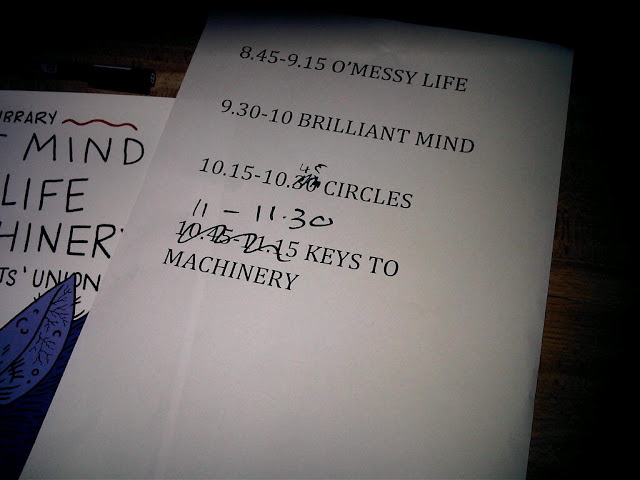 8.45-9.15 O'MESSY LIFE
9.30-10 BRILLIANT MIND
45
10.15-10.30 CIRCLES
11 - 11.30
10.45-11.15 KEYS TO
MACHINERY
MIND
LIFE
UNION